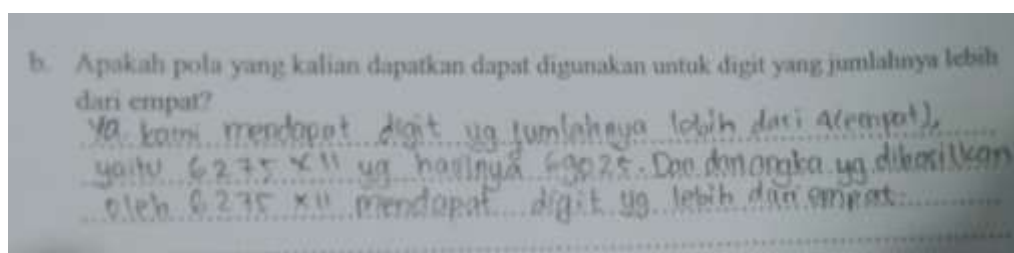 b. Apakah pola yang kalian dapatkan dapat digunakan untuk digit yang jumlahnya lebih
dari empat?
Ya kami mendapat digit yg jumlahnya lebih dari 4(empat),
yaitu 6275 x 11 yg hasilnya 69025. Dan dari angka yg dihasilkan
oleh 6275 x 11 mendapat digit yg lebih dari empat.